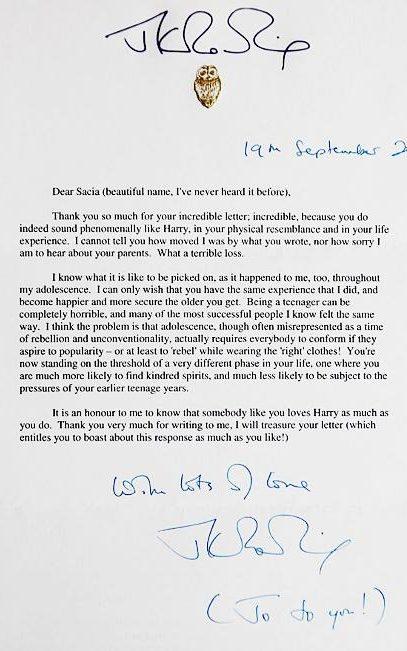 JK Rowling
19th September 2
Dear Sacia (beautiful name, I've never heard it before),
Thank you so much for your incredible letter; incredible, because you do
indeed sound phenomenally like Harry, in your physical resemblance and in your life
experience. I cannot tell you how moved I was by what you wrote, nor how sorry I
am to hear about your parents. What a terrible loss.
I know what it is like to be picked on, as it happened to me, too, throughout
my adolescence. I can only wish that you have the same experience that I did, and
become happier and more secure the older you get. Being a teenager can be
completely horrible, and many of the most successful people I know felt the same
way. I think the problem is that adolescence, though often misrepresented as a time
of rebellion and unconventionality, actually requires everybody to conform if they
aspire to popularity – or at least to 'rebel' while wearing the 'right' clothes! You're
now standing on the threshold of a very different phase in your life, one where you
are much more likely to find kindred spirits, and much less likely to be subject to the
pressures of your earlier teenage years.
It is an honour to me to know that somebody like you loves Harry as much as
you do. Thank you very much for writing to me, I will treasure your letter (which
entitles you to boast about this response as much as you like!)
With lots of love
JK Rowling
(Jo to you!)